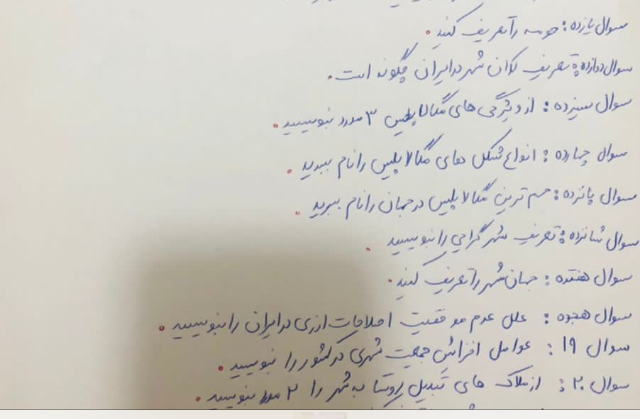 سوال یازده: حومه را تعریف کنید.
سوال دوازده: تعریف کلان شهر در ایران چگونه است.
سوال سیزده: از ویژگی های مگالاپلیس ۳ مورد بنویسید.
سوال چهارده: انواع شکل های مگالاپلیس را نام ببرید.
سوال پانزده: مهم ترین مگالاپلیس در جهان را نام ببرید.
سوال شانزده: تعریف شهرگرایی را بنویسید.
سوال هفتده: جهان شهر را تعریف کنید.
سوال هجده: علل عدم موفقیت اصلاحات ارضی در ایران را بنویسید.
سوال ۱۹: عوامل افزایش جمعیت شهری در کشور را بنویسید.
سوال ۲۰: از ملاک های تبدیل روستا به شهر را ۲ مورد بنویسید.